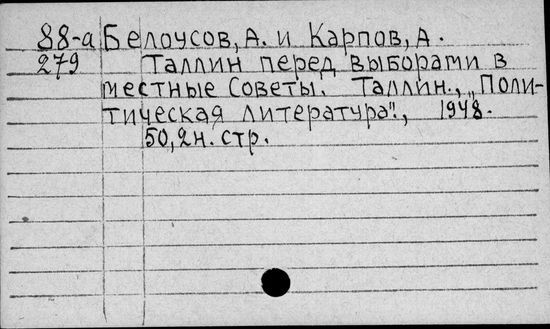 88-а Белоусов, А. и Карпов, А.
279 Таллин перед выборами в
местные Советы. Таллин., „Поли-
тическая литература"., 1948.
50,2н. стр.